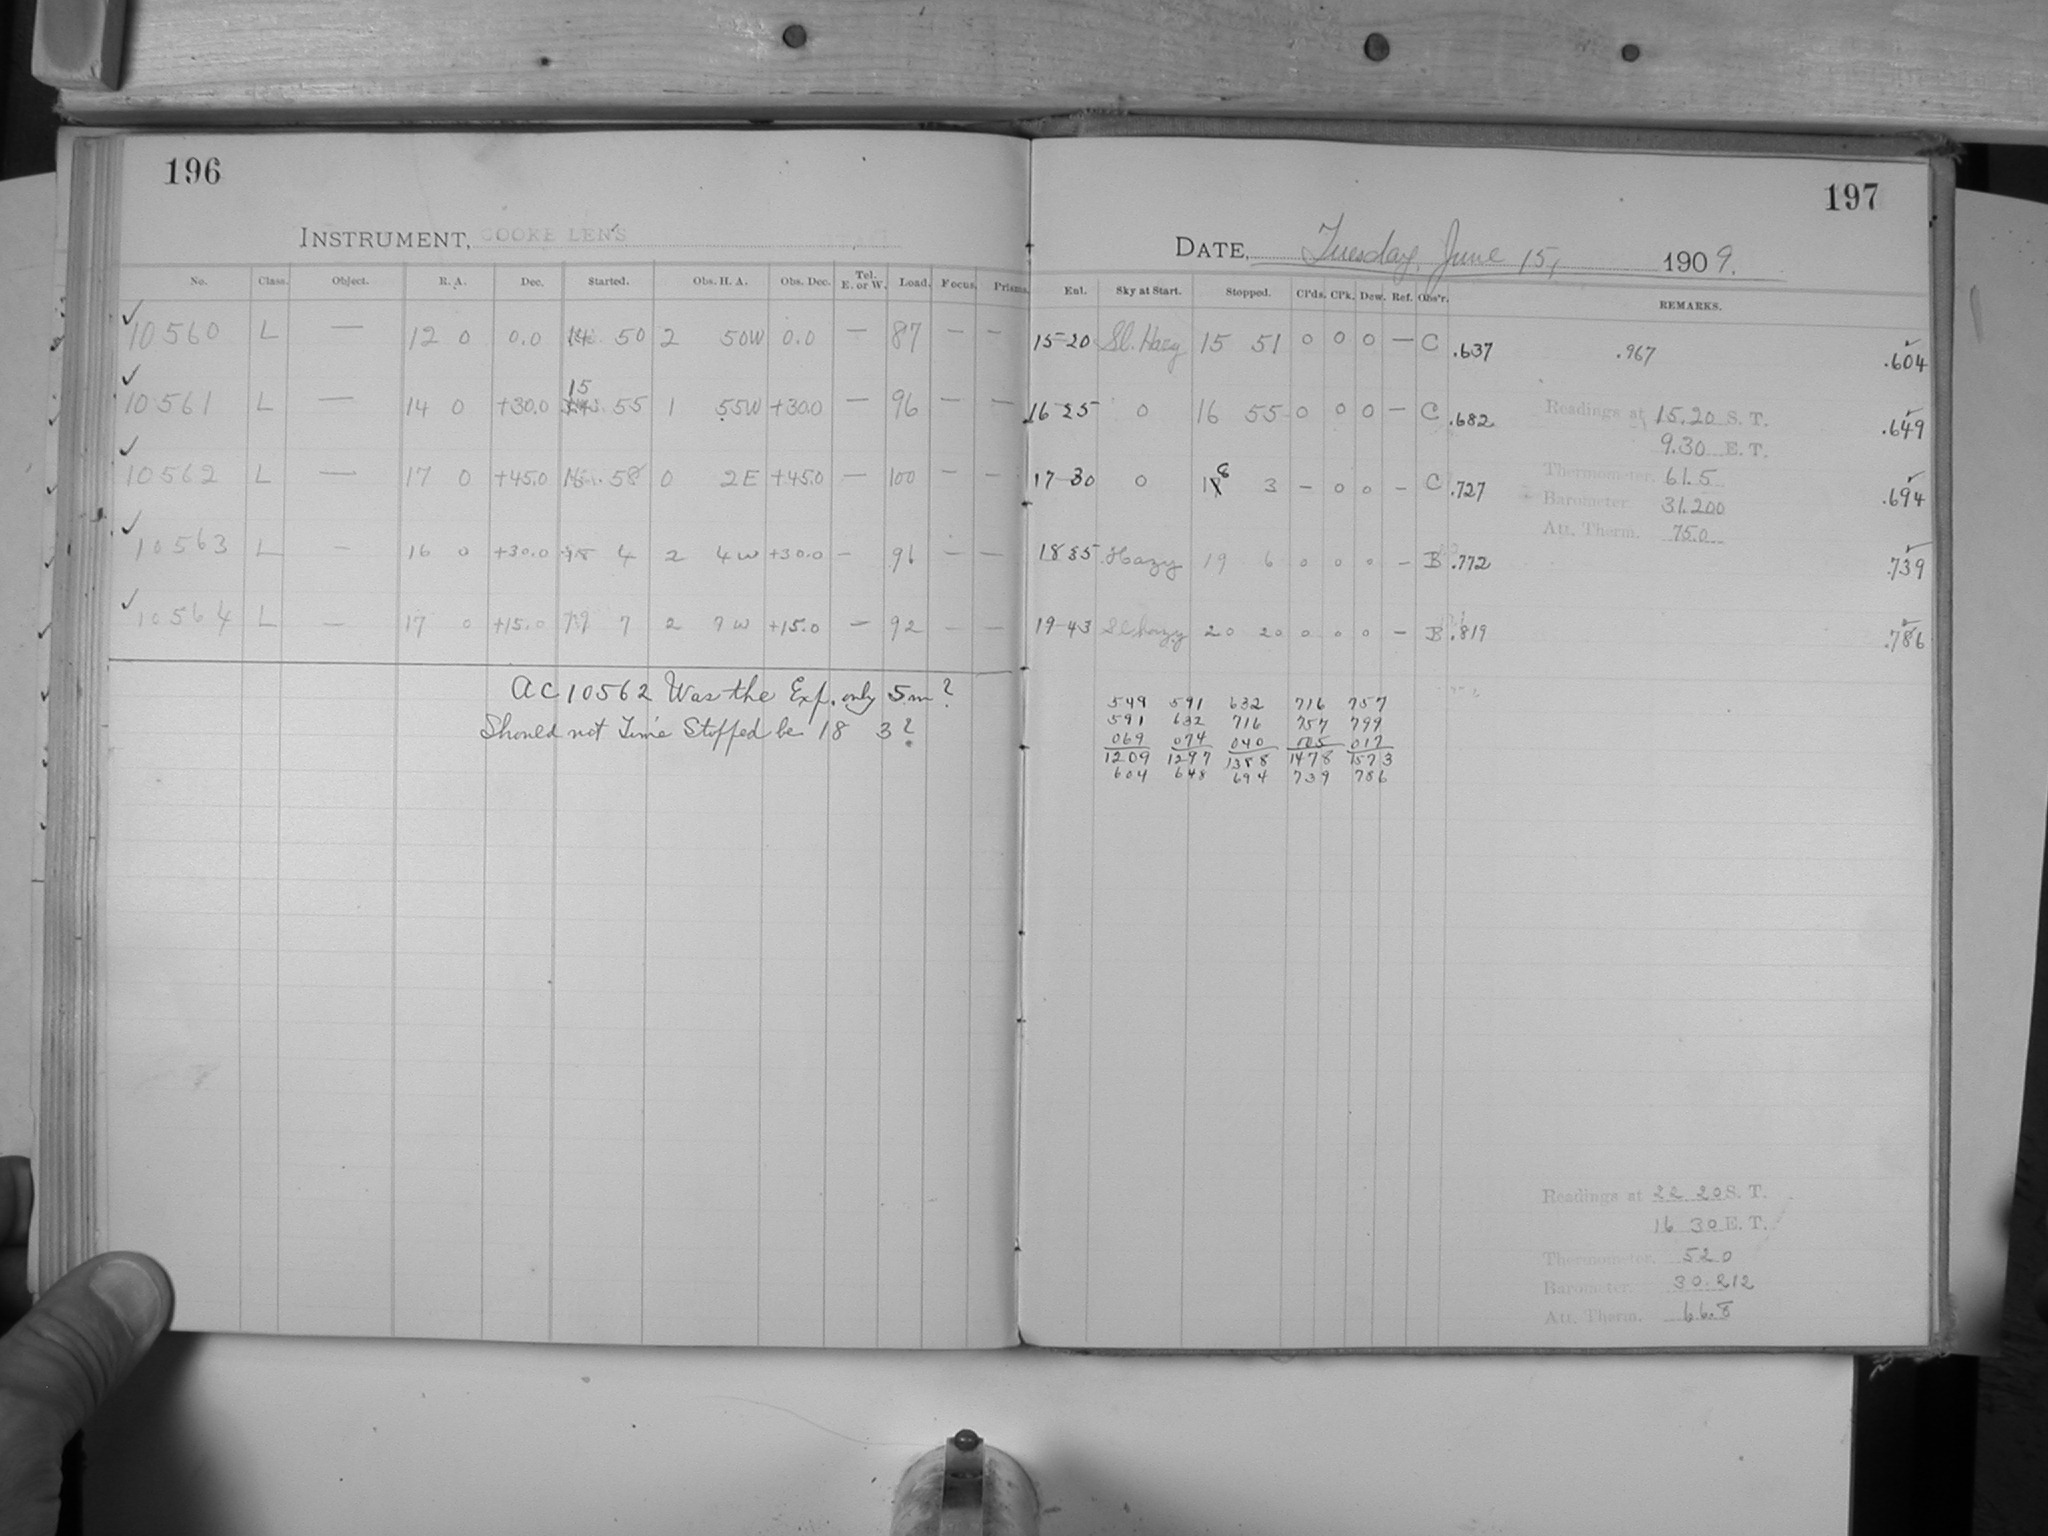 196
INSTRUMENT, COOKE LENS
No. Class. Object. R. A. Dec. Started. Obs. H. A. Obs. Dec. Tel. E. or W. Load. Focus. Prisms.
✓ 10560 L — 12 0 0.0 14 50 2 50W 0.0 — 87 — —
✓ 10561 L — 14 0 +30.0 15 55 1 55W +30.0 — 96 — —
✓ 10562 L — 17 0 +45.0 16 58 0 2E +45.0 — 100 — —
✓ 10563 L — 16 0 +30.0 18 4 2 4W +30.0 — 96 — —
✓ 10564 L — 17 0 +15.0 19 7 2 7W +15.0 — 92 — —
AC 10562 Was the Exp. only 5m?
Should not Time Stopped be 18 3?
197
DATE, Tuesday, June 15, 1909.
Ent. Sky at Start. Stopped. Cl'ds. Cl'k. Dew. Ref. Obs'r. REMARKS.
15-20 Sl. Hazy 15 51 0 0 0 — C .637 .967 .604
16 25 0 16 55 0 0 0 — C .682 .649
17-30 0 18 3 — 0 0 — C .727 .694
18 35 Hazy 19 6 0 0 0 — B .772 .739
19-43 Sl. hazy 20 20 0 0 0 — B .819 .786
Readings at 15.20 S. T.
9.30 E. T.
Thermometer. 61.5
Barometer 31.200
Att. Therm. 75.0
549 591 632 716 757
591 632 716 757 799
069 074 040 005 017
1209 1297 1388 1478 1573
604 648 694 739 786
Readings at 22 20 S. T.
16 30 E. T.
Thermometer. 52.0
Barometer 30.212
Att. Therm. 66.8